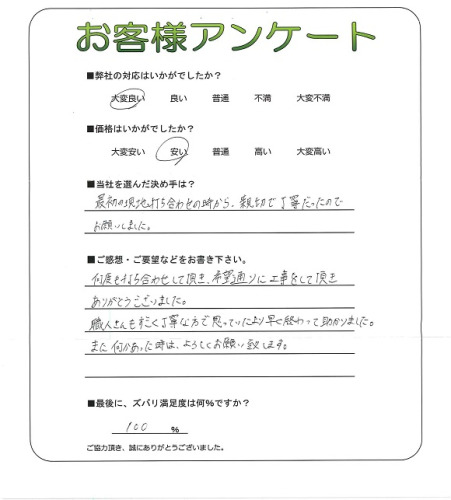 お客様アンケート
■弊社の対応はいかがでしたか？
大変良い 良い 普通 不満 大変不満
■価格はいかがでしたか？
大変安い 安い 普通 高い 大変高い
■当社を選んだ決め手は？
最初の現地打ち合わせの時から、親切で丁寧だったので
お願いしました。
■ご感想・ご要望などをお書き下さい。
何度も打ち合わせして頂き、希望通りに工事をして頂き
ありがとうございました。
職人さんもすごく丁寧な方で思っていたより早く終わって助かりました。
また何かあった時は、よろしくお願い致します。
■最後に、ズバリ満足度は何%ですか？
100 %
ご協力頂き、誠にありがとうございました。